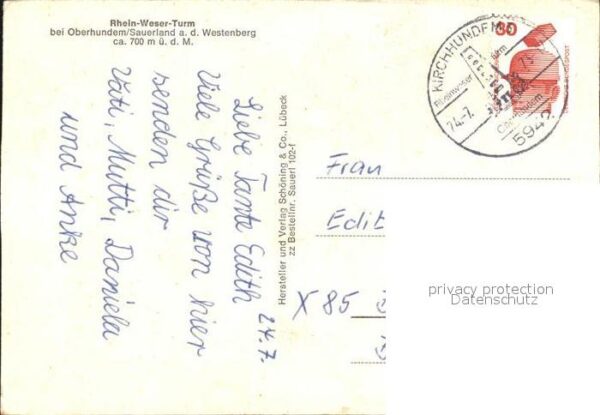 Rhein-Weser-Turm
bei Oberhundem/Sauerland a. d. Westenberg
ca. 700 m ü. d. M.
Liebe Tante Edith 24.7.
Viele Grüße von hier
senden dir
Vati, Mutti, Daniela
und Anke
Hersteller und Verlag Schöning & Co., Lübeck
zz Bestellnr. Sauerl 102-f
KIRCHHUNDEM
Rheinweser
turm
24.-7.
5942
30
Frau
Edit
X 85
privacy protection
Datenschutz